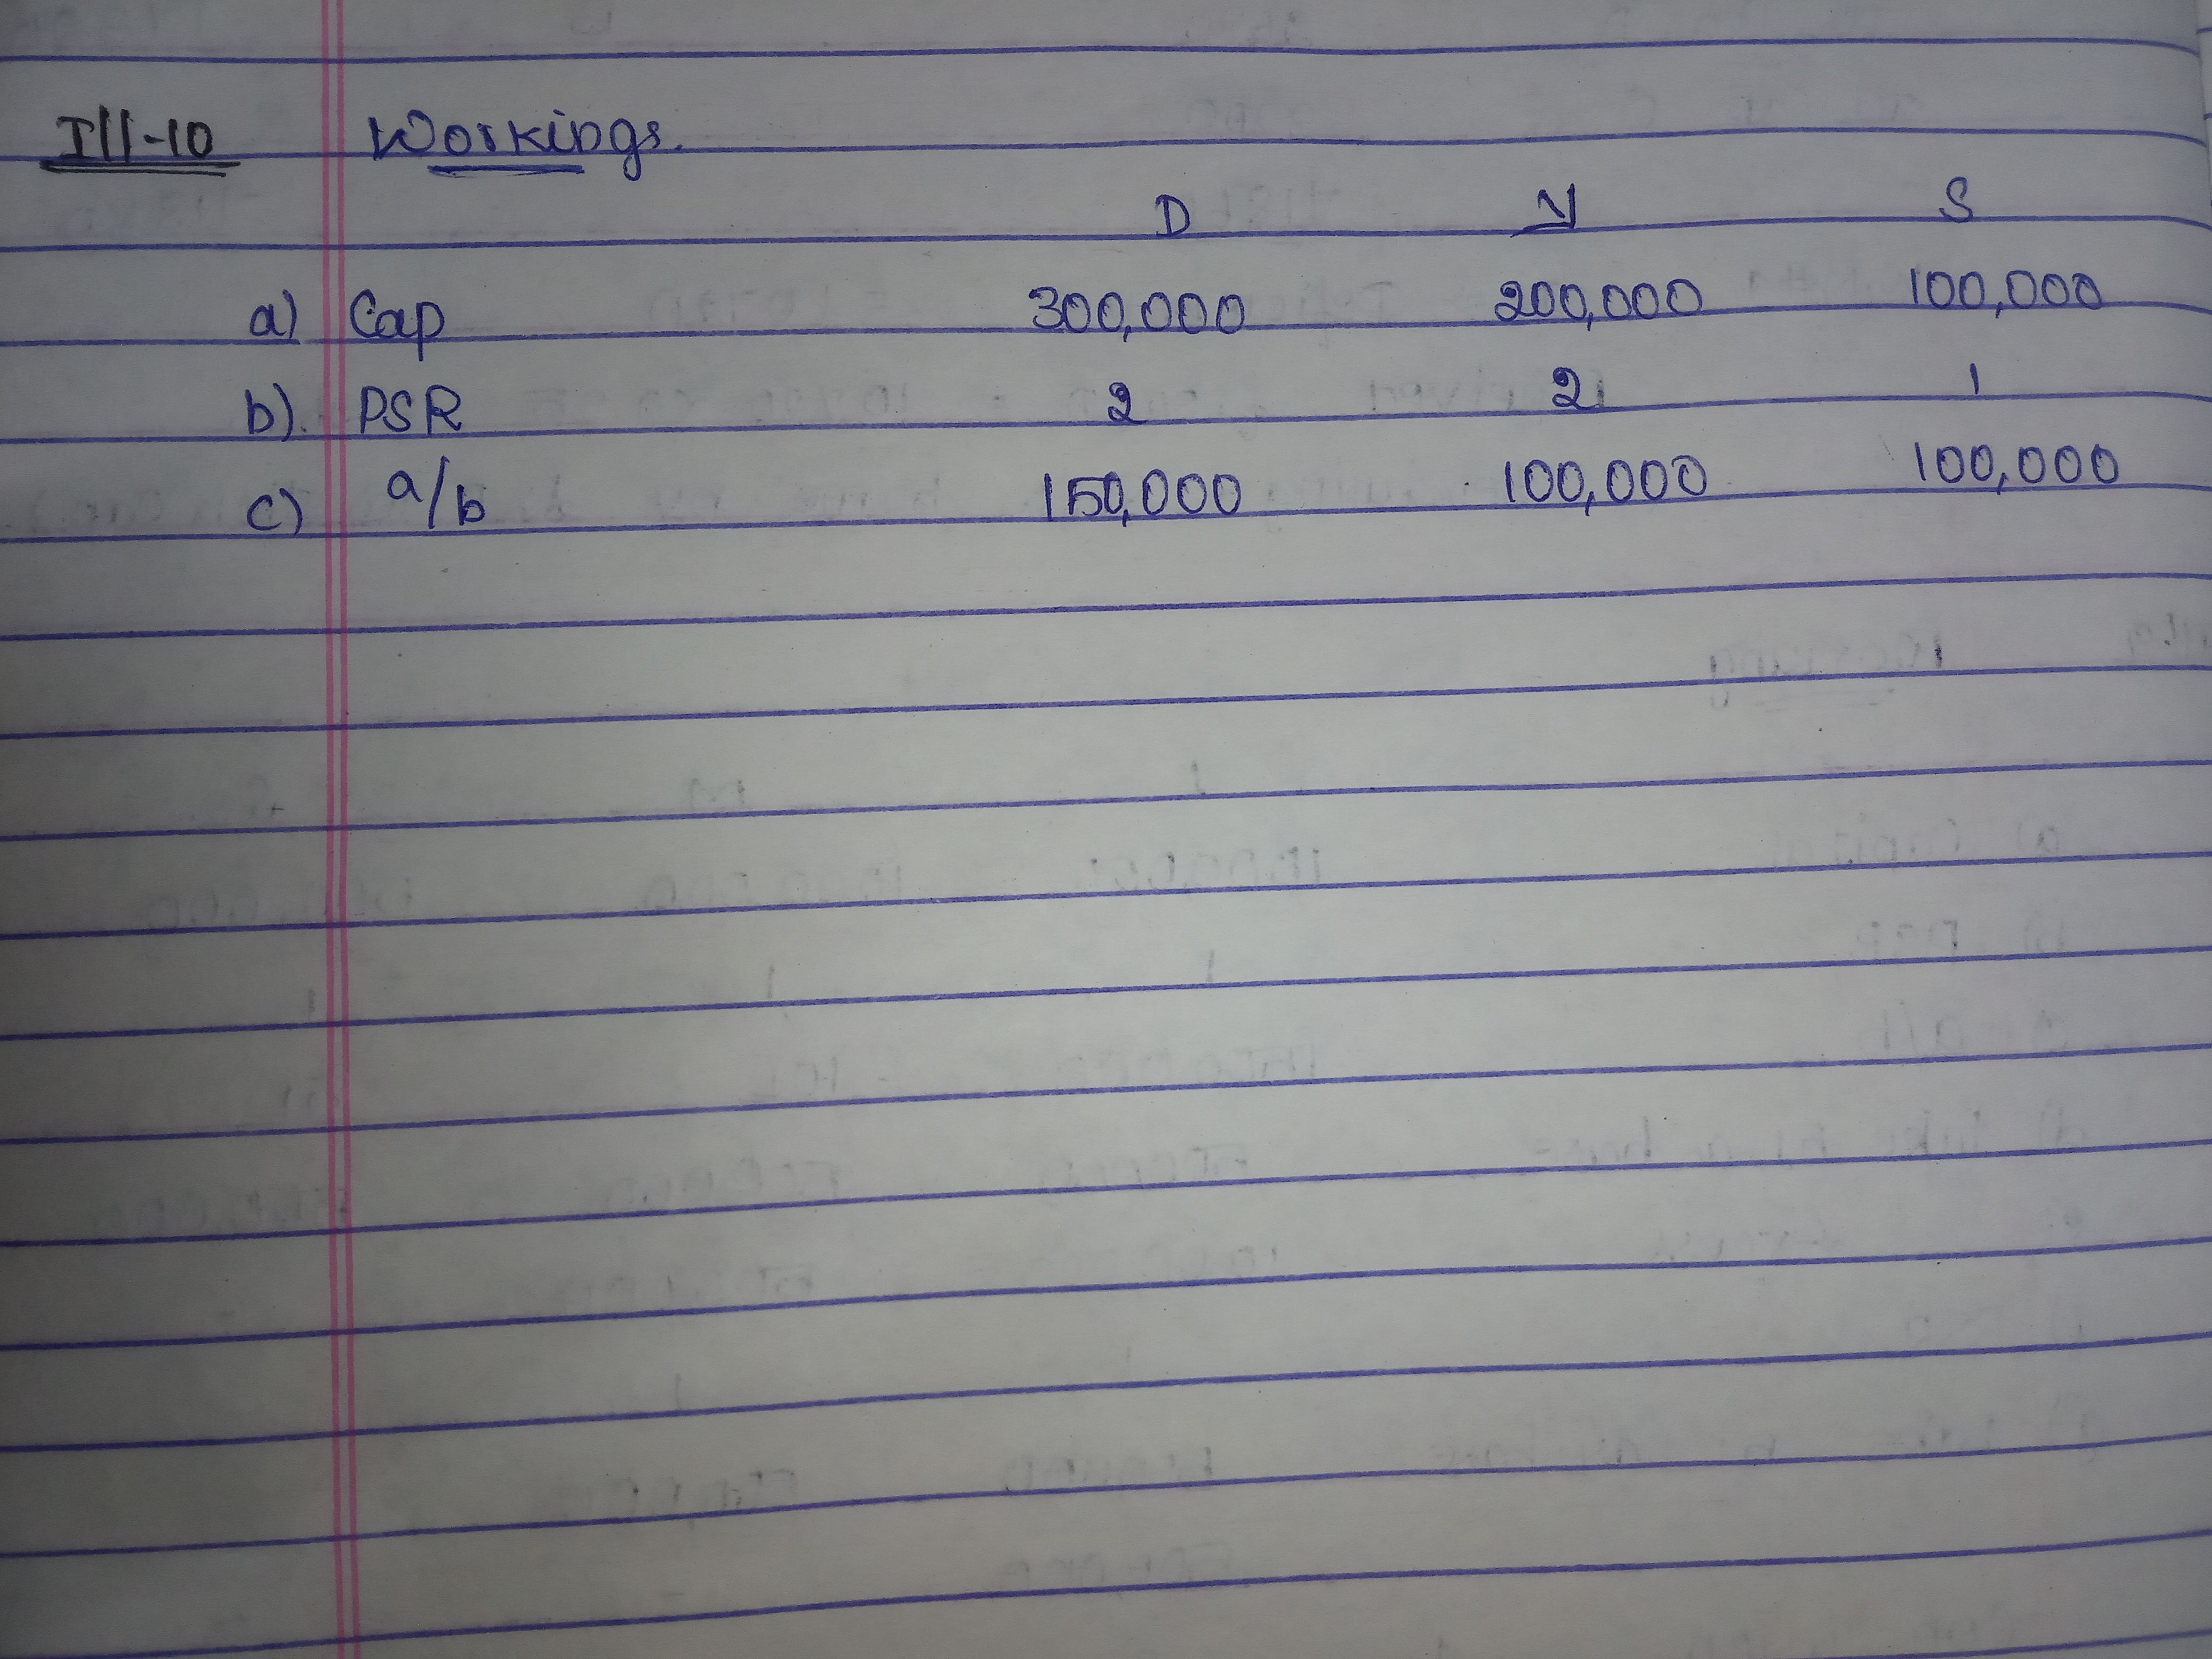 Ill-10 Workings.
D N S
a) Cap 300,000 200,000 100,000
b). PSR 2 2 1
c) a/b 150,000 100,000 100,000